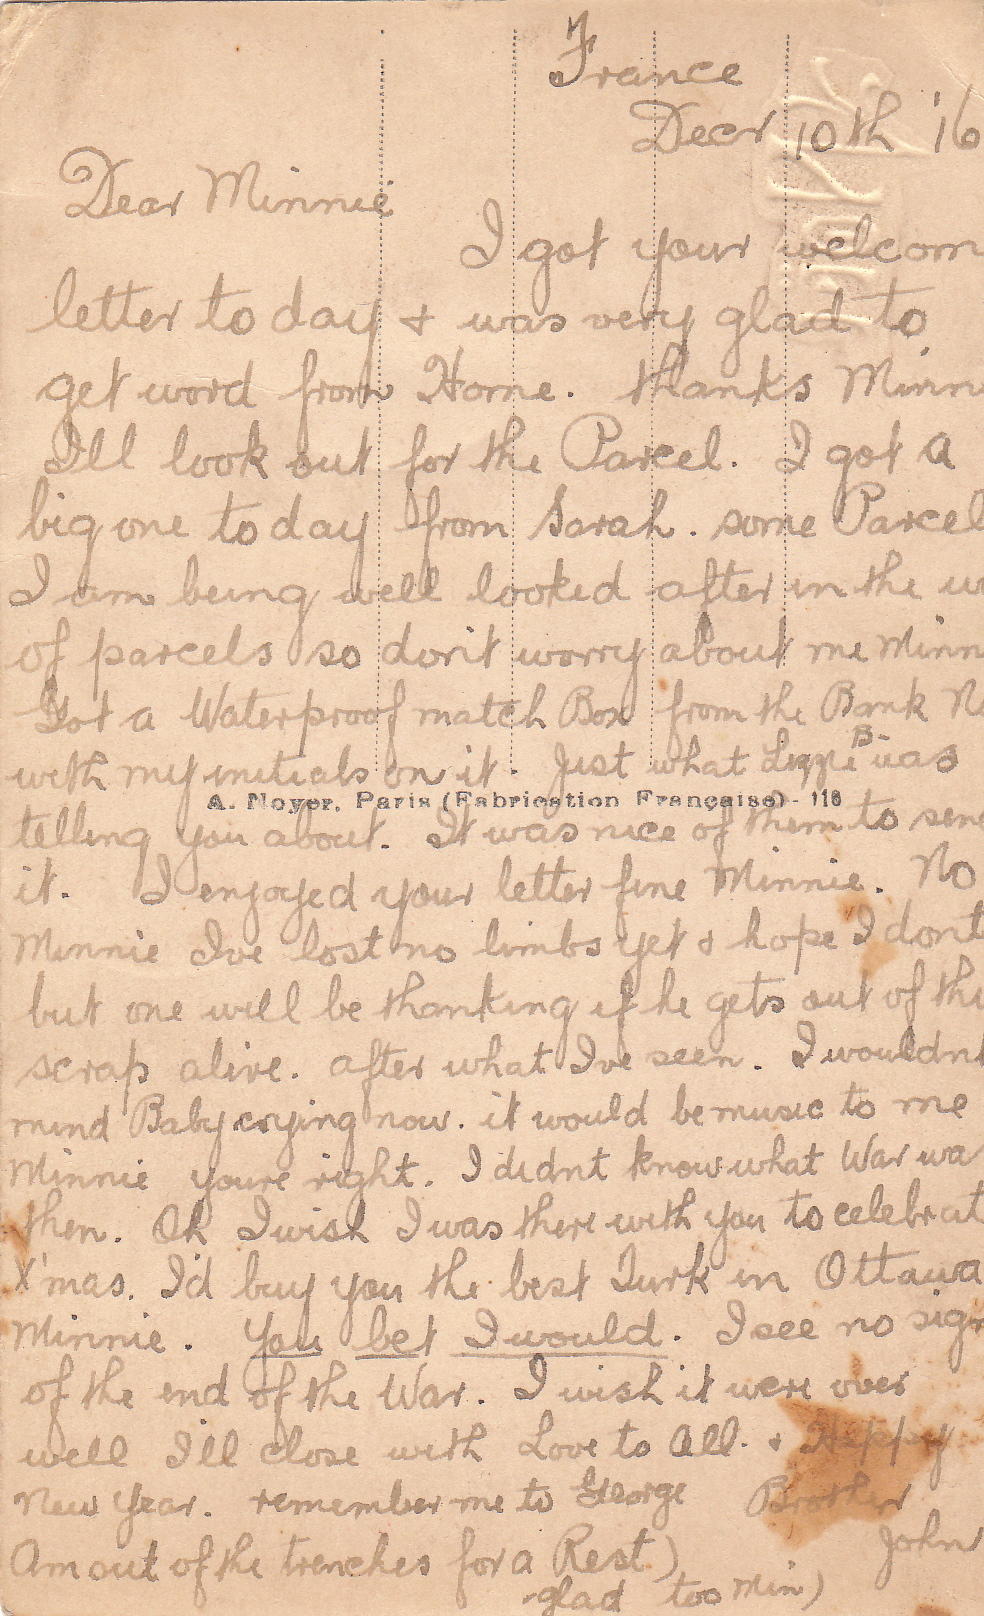 France
Decr 10th '16
Dear Minnie
I got your welcom
letter to day & was very glad to
get word from Home. thanks Minn
I'll look out for the Parcel. I got a
big one to day from Sarah. some Parcel
I am being well looked after in the
of parcels so don't worry about me Minn
Got a Waterproof match Box from the Bank
with my initials on it. Just what Lizzie B- was
A. Noyer, Paris (Fabrication Française) - 118
telling you about. It was nice of them to sen
it. I enjoyed your letter fine Minnie. No
Minnie I've lost no limbs yet & hope I dont
but one will be thanking if he gets out of thi
scrap alive. after what I've seen. I wouldnt
mind Baby crying now. it would be music to me
Minnie youre right. I didnt know what War wa
then. Oh I wish I was there with you to celebrat
X'mas. I'd buy you the best Turk in Ottawa
Minnie. You bet I would. I see no sign
of the end of the War. I wish it were over
well I'll close with Love to All. & Happy
New Year. remember me to George Brother
John
Am out of the trenches for a Rest)
glad too Min)